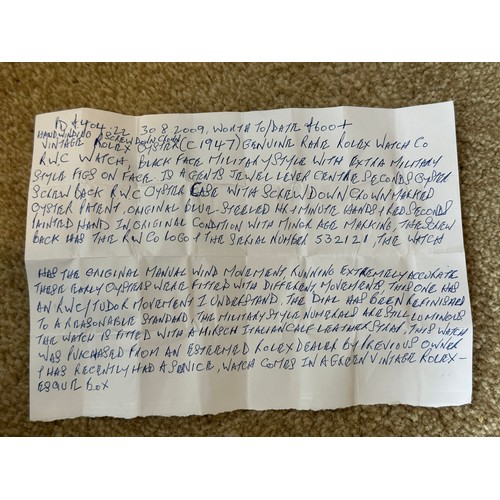 PD £404.22 30 8 2009, WORTH TO/DATE £600+
HANDWINDING & SCREWDOWN CROWN
VINTAGE ROLEX OYSTER (C 1947) GENUINE RARE ROLEX WATCH CO
RWC WATCH, BLACK FACE MILITARY STYLE WITH EXTRA MILITARY
STYLE FIGS ON FACE IS A GENTS JEWEL CENTRE SECONDS OYSTER
SCREW BACK RWC OYSTER CASE WITH SCREW DOWN CROWN MARKED
OYSTER PATENT, ORIGINAL BLUE STEELED HR & MINUTE HANDS & RED SECONDS
PAINTED HAND IN ORIGINAL CONDITION WITH MINOR AGE MARKING, THE SCREW
BACK HAS THE RWCO LOGO & THE SERIAL NUMBER 532121, THE WATCH
HAS THE ORIGINAL MANUAL WIND MOVEMENT, RUNNING EXTREMELY ACCURATE
THESE EARLY OYSTERS WERE FITTED WITH DIFFERENT MOVEMENTS, THIS ONE HAS
AN RWC/TUDOR MOVEMENT I UNDERSTAND. THE DIAL HAS BEEN REFINISHED
TO A REASONABLE STANDARD, THE MILITARY STYLE NUMERALS ARE STILL LUMINOUS
THE WATCH IS FITTED WITH A HIRSCH ITALIAN CALF LEATHER STRAP, THIS WATCH
WAS PURCHASED FROM AN ESTEEMED ROLEX DEALER BY PREVIOUS OWNER
& HAS RECENTLY HAD A SERVICE, WATCH COMES IN A GREEN VINTAGE ROLEX-
ESQUE BOX